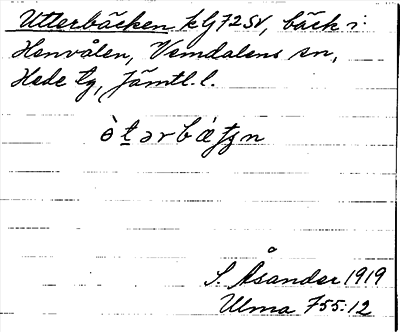 Utterbäcken kG7250, bäck i
Henvålen, Vemdalens sn,
Hede tg, Jämtl. l.
ò t̲ ər b ǽ ʈʂ n
S. Åsander 1919
Ulma 755:12